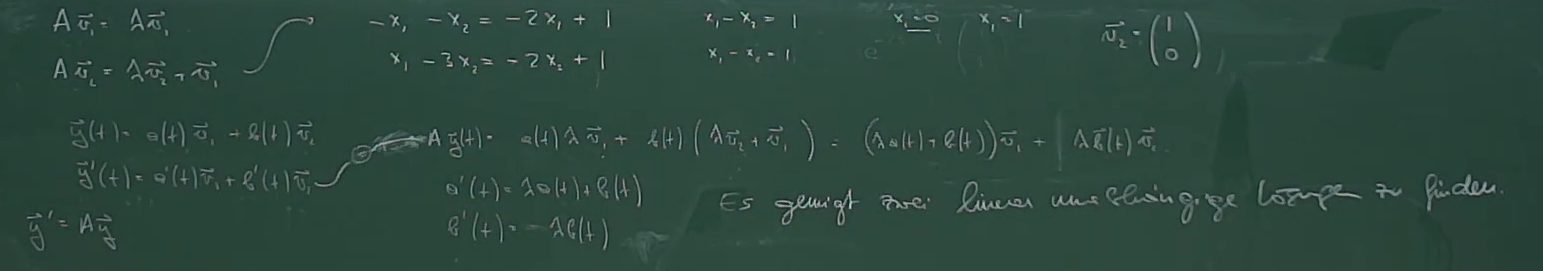 A v⃗₁ = λ v⃗₁
A v⃗₂ = λ v⃗₂ + v⃗₁
-x₁ - x₂ = -2x₁ + 1
x₁ - 3x₂ = -2x₂ + 1
x₁ - x₂ = 1
x₁ - x₂ = 1
x₂ = 0 x₁ = 1
v⃗₂ = (1 0)
y⃗(t) = a(t) v⃗₁ + b(t) v⃗₂
y⃗'(t) = a'(t) v⃗₁ + b'(t) v⃗₂
y⃗' = A y⃗
A y⃗(t) = a(t) λ v⃗₁ + b(t) (λ v⃗₂ + v⃗₁) = (λ a(t) + b(t)) v⃗₁ + λ b(t) v⃗₂
a'(t) = λ a(t) + b(t)
b'(t) = λ b(t)
Es genügt zwei linear unabhängige Lösungen zu finden.